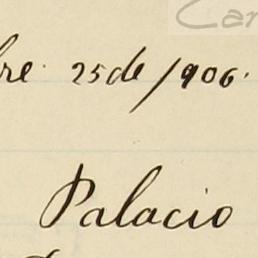 bre 25 de 1906.
Palacio